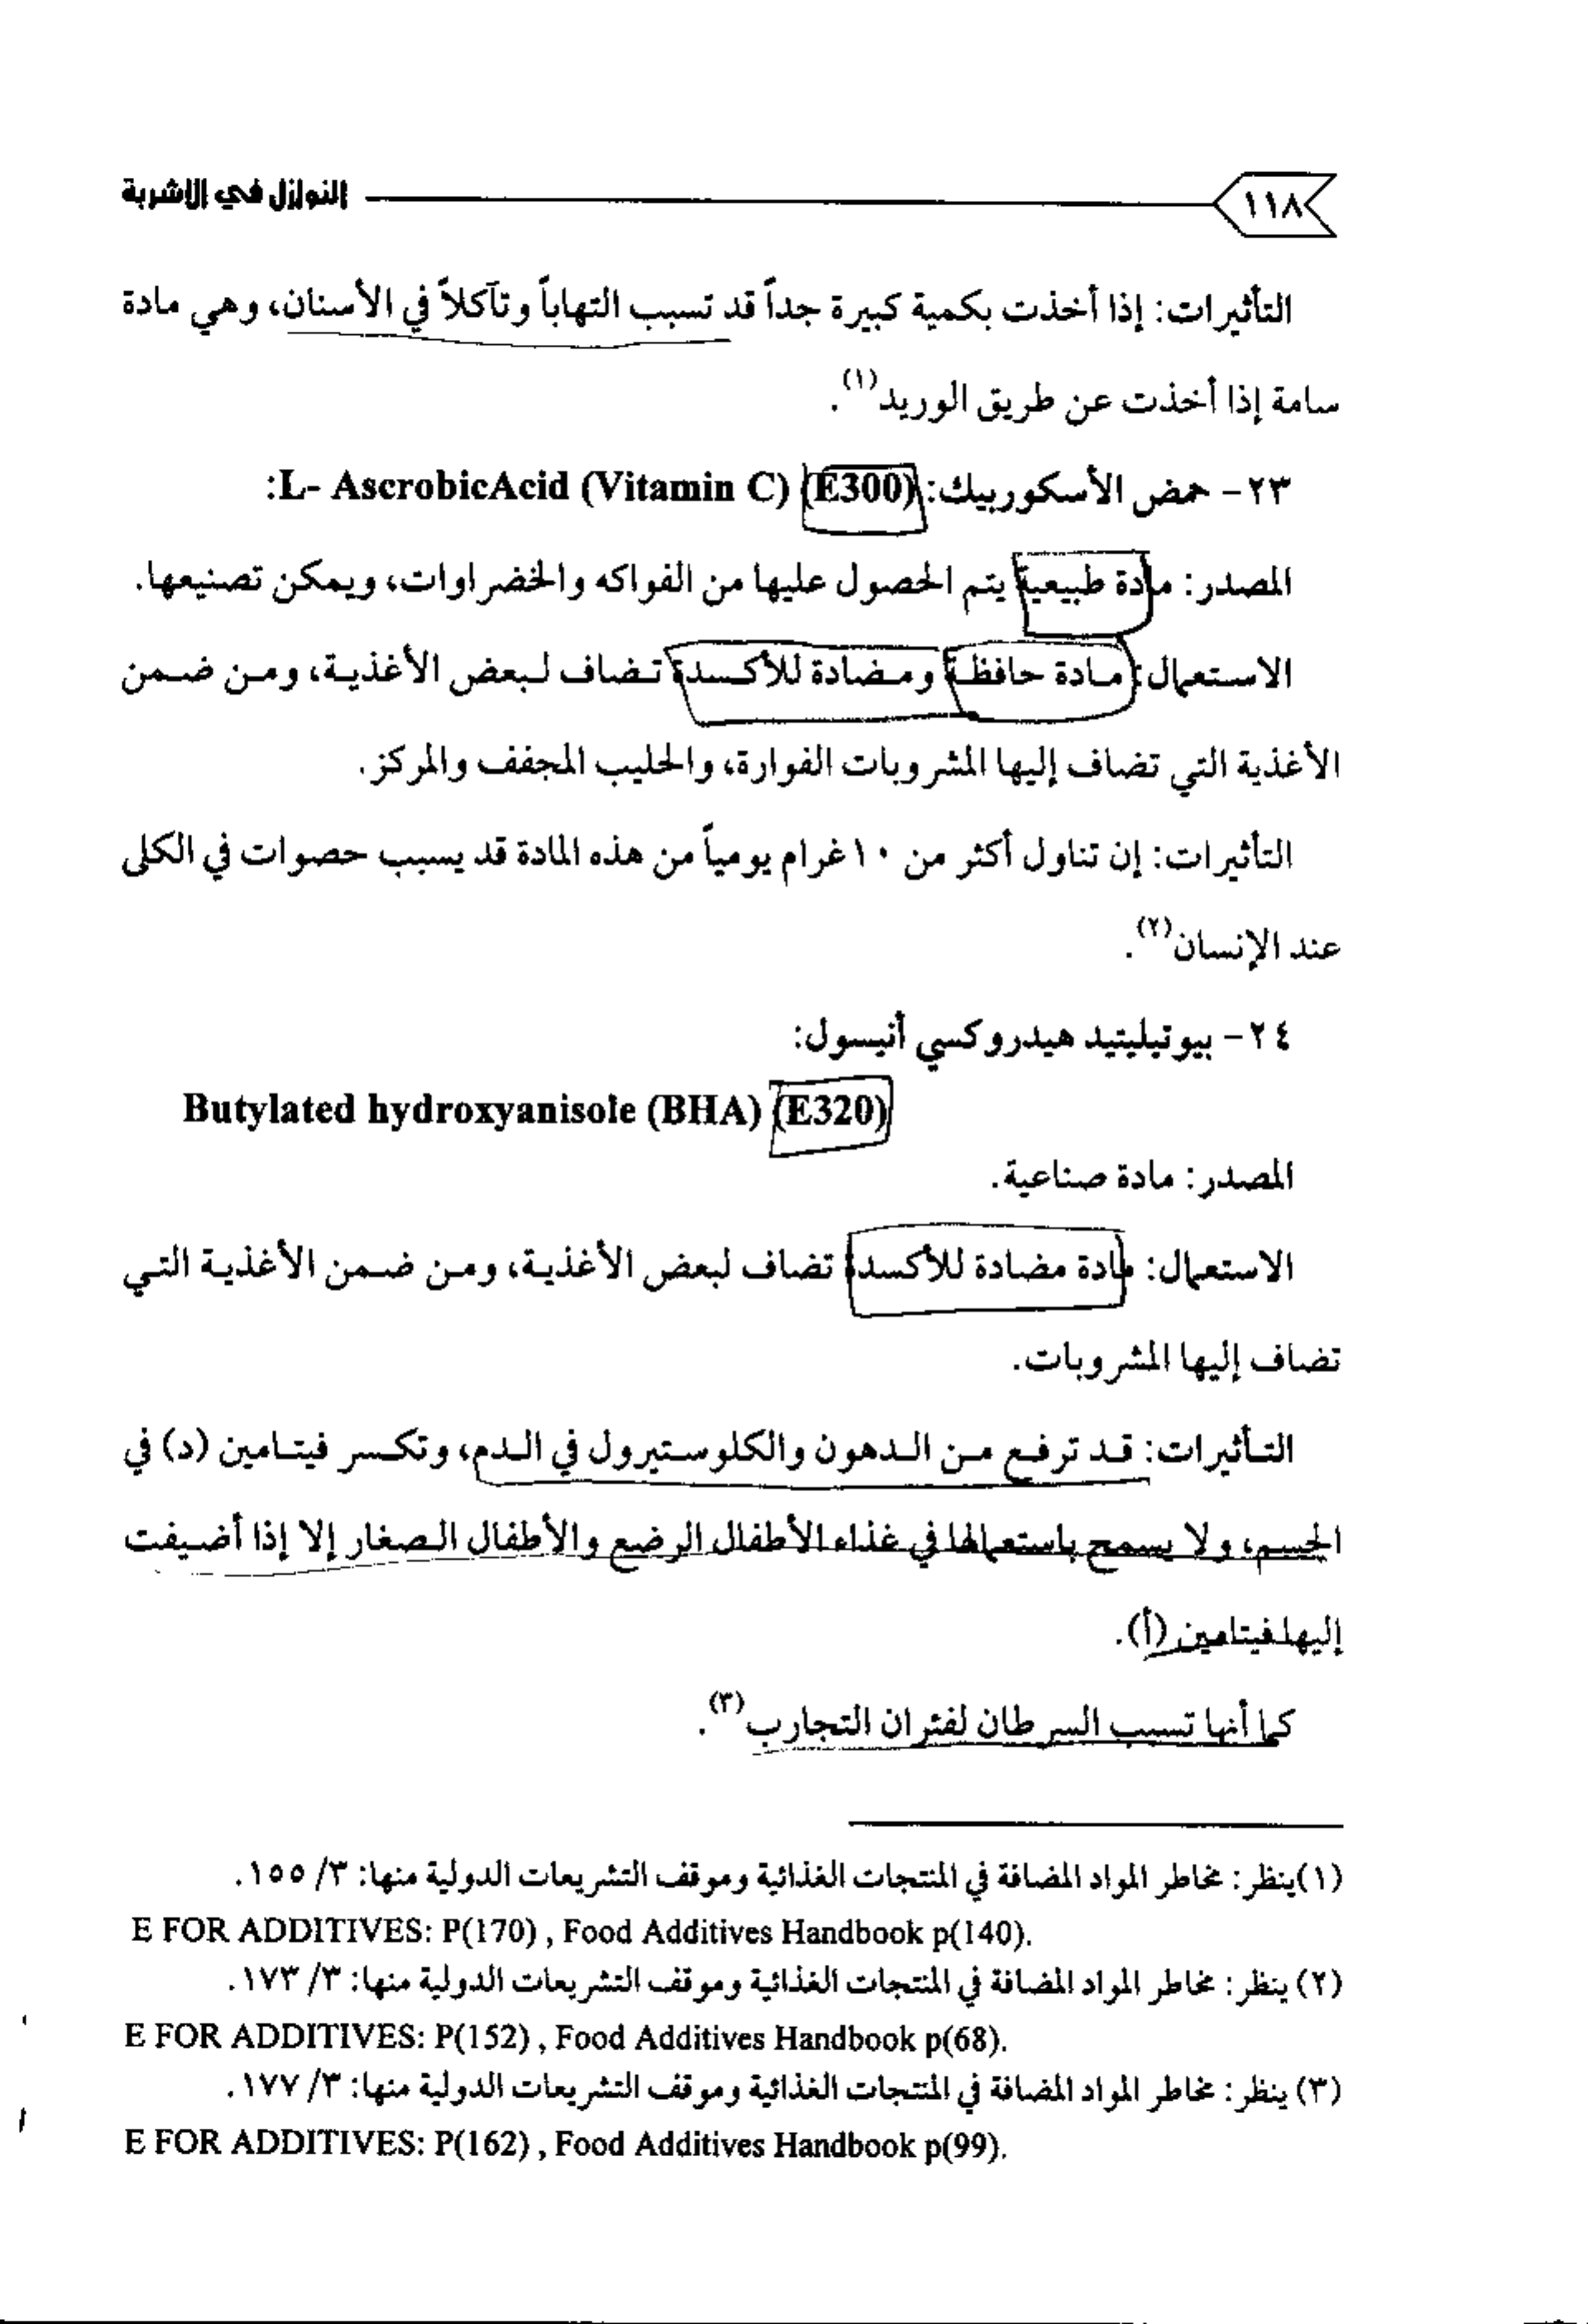 ١١٨ النوازل في الاشربة
التأثيرات: إذا أخذت بكمية كبيرة جداً قد تسبب التهاباً وتآكلاً في الأسنان، وهي مادة
سامة إذا أخذت عن طريق الوريد(١).
٢٣- حمض الأسكوربيك: L- AscrobicAcid (Vitamin C) (E300):
المصدر: مادة طبيعية يتم الحصول عليها من الفواكه والخضراوات، ويمكن تصنيعها.
الاستعمال: مادة حافظة ومضادة للأكسدة تضاف لبعض الأغذية، ومن ضمن
الأغذية التي تضاف إليها المشروبات الفوارة، والحليب المجفف والمركز.
التأثيرات: إن تناول أكثر من ١٠غرام يومياً من هذه المادة قد يسبب حصوات في الكلى
عند الإنسان(٢).
٢٤- بيوتيليتيد هيدروكسي أنيسول:
Butylated hydroxyanisole (BHA) (E320)
المصدر: مادة صناعية.
الاستعمال: مادة مضادة للأكسدة تضاف لبعض الأغذية، ومن ضمن الأغذية التي
تضاف إليها المشروبات.
التأثيرات: قد ترفع من الدهون والكلوستيرول في الدم، وتكسر فيتامين (د) في
الجسم، ولا يسمح باستعمالها في غذاء الأطفال الرضع والأطفال الصغار إلا إذا أضيفت
إليها فيتامين (أ).
كما أنها تسبب السرطان لفئران التجارب(٣).
(١)ينظر: مخاطر المواد المضافة في المنتجات الغذائية وموقف التشريعات الدولية منها: ٣/ ١٥٥.
E FOR ADDITIVES: P(170) , Food Additives Handbook p(140).
(٢) ينظر: مخاطر المواد المضافة في المنتجات الغذائية وموقف التشريعات الدولية منها: ٣/ ١٧٣.
E FOR ADDITIVES: P(152) , Food Additives Handbook p(68).
(٣) ينظر: مخاطر المواد المضافة في المنتجات الغذائية وموقف التشريعات الدولية منها: ٣/ ١٧٧.
E FOR ADDITIVES: P(162) , Food Additives Handbook p(99).